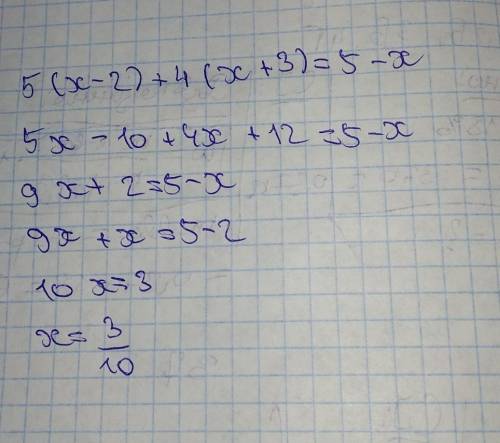 5(x-2)+4(x+3)=5-x
5x-10+4x+12=5-x
9x+2=5-x
9x+x=5-2
10x=3
x=3/10